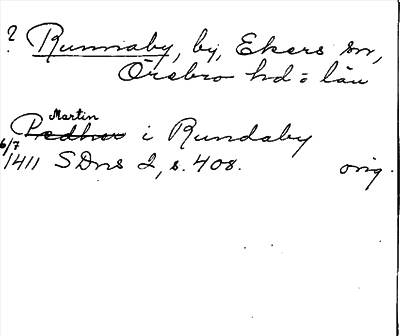 ? Runnaby, by, Ekers sn,
Örebro hd = län
Martin
Pedher i Rundaby
6/7
1411 SDns 2, s. 408. orig.